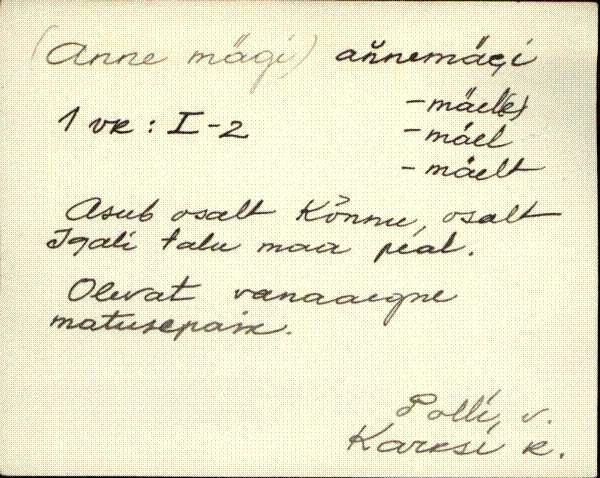 (Anne mägi) aňnemägi
-mäele)
-mäel
-mäelt
1 vk : I-2
Asub osalt Kõnnu, osalt
Igali talu maa peal.
Olevat vanaaegne
matusepaik.
Polli, v.
Karksi k.